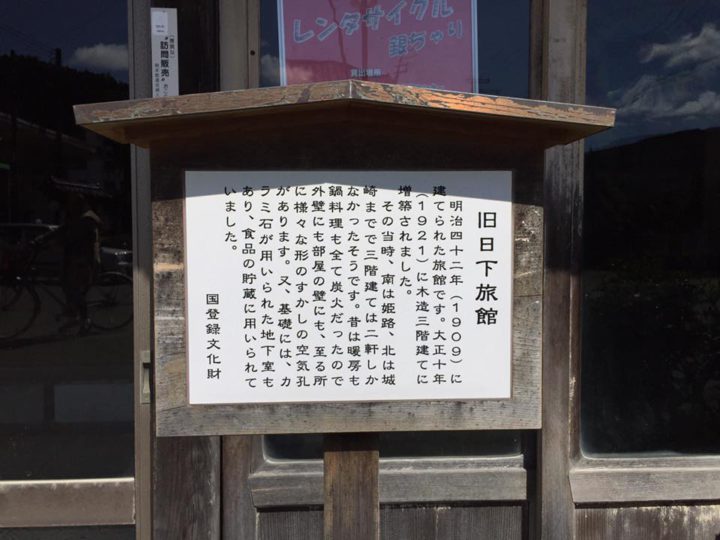 レンタサイクル
銀ちゃり
貸出場所
訪問販売
旧日下旅館
明治四十二年（1909）に
建てられた旅館です。大正十年
（1921）に木造三階建てに
増築されました。
その当時、南は姫路、北は城
崎までで三階建ては二軒しか
なかったそうです。昔は暖房も
鍋料理も全て炭火だったので
外壁にも部屋の壁にも、至る所
に様々な形のすかしの空気孔
があります。又、基礎には、カ
ラミ石が用いられた地下室も
あり、食品の貯蔵に用いられて
いました。
国登録文化財